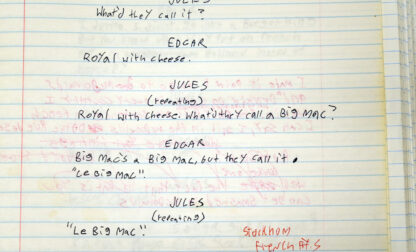 JULES
What'd they call it?
EDGAR
Royal with cheese.
JULES
(repeating)
Royal with cheese. What'd they call a Big Mac?
EDGAR
Big Mac's a Big Mac, but they call it
"Le Big Mac".
JULES
(repeating)
"Le Big Mac".
French